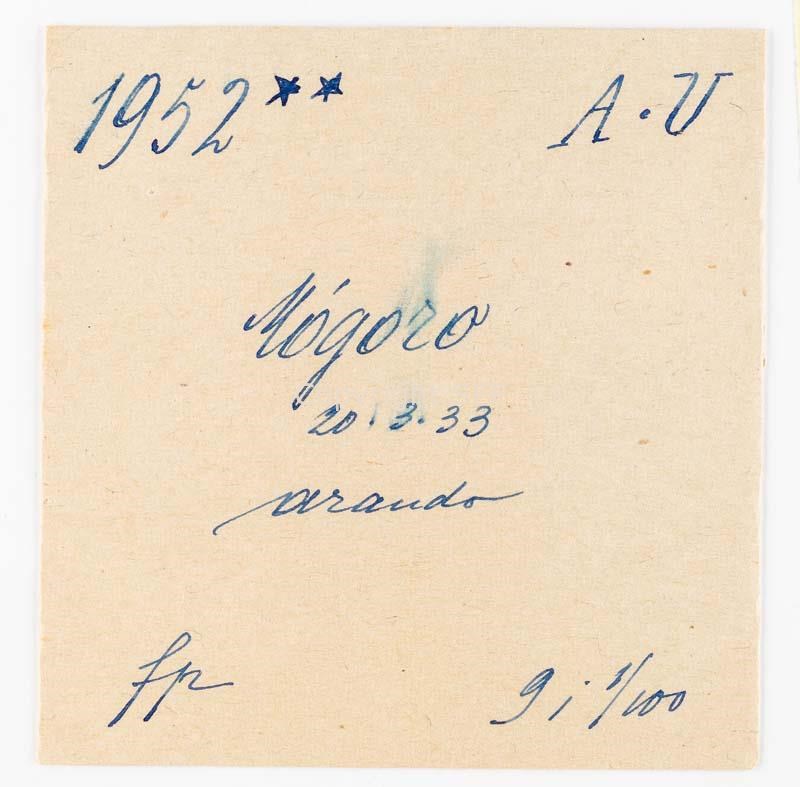 1952 ★★ A·V
Mógoro
20.3.33
arando
fp
9 i 1/100